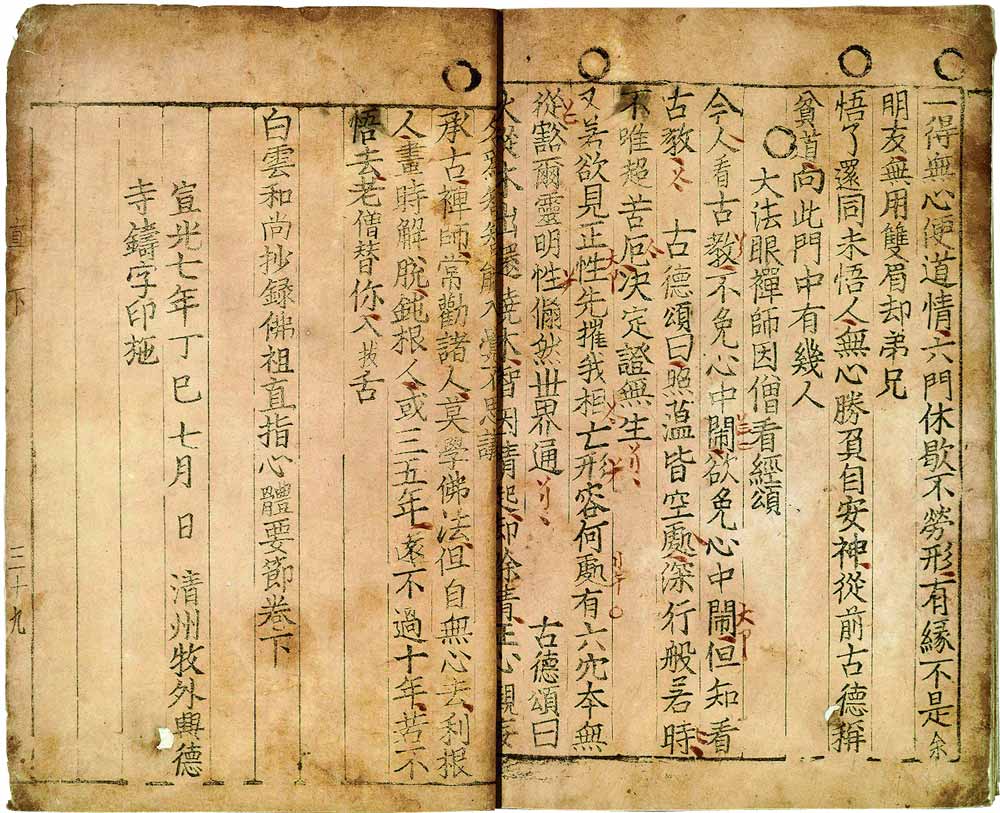 一得無心便道情六門休歇不勞形有緣不是余
明友無用雙眉却弟兄
悟了還同未悟人無心勝負自安神從前古德稱
貧道向此門中有幾人
大法眼禪師因僧看經頌
今人看古教不免心中鬧欲免心中鬧但知看
古教 古德頌曰照蘊皆空處深行般若時
不唯超苦厄决定證無生
又若欲見正性先摧我相亡形容何處有六穴本無
從豁爾靈明性翛然世界通 古德頌曰
還燒木智因情起却除情
入覺不思議
承古禪師常勸諸人莫學佛法但自無心去利根
人晝時解脫鈍根人或三五年遠不過十年若不
悟去老僧替你入拔舌
白雲和尚抄錄佛祖直指心體要節卷下
宣光七年丁巳七月 日 清州牧外興德
寺鑄字印施
直 下 三十九